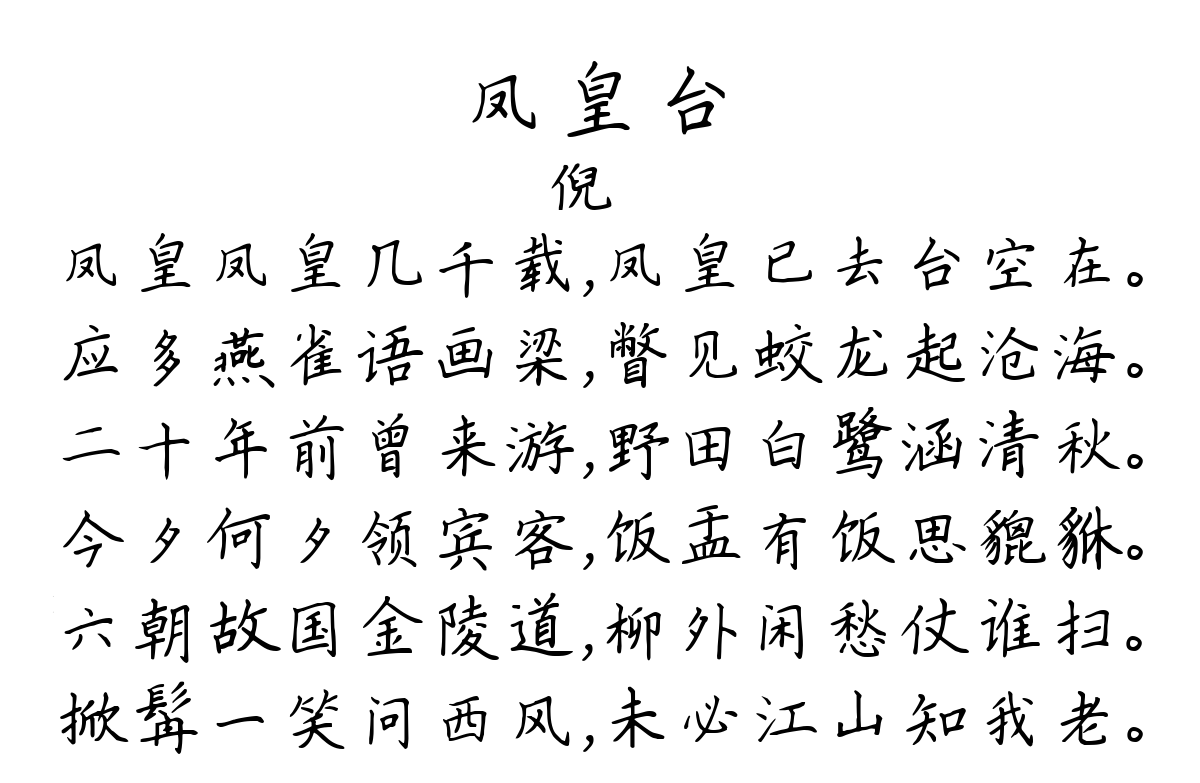 凤皇台
倪
凤皇凤皇几千载,凤皇已去台空在。
应多燕雀语画梁,瞥见蛟龙起沧海。
二十年前曾来游,野田白鹭涵清秋。
今夕何夕领宾客,饭盂有饭思貔貅。
六朝故国金陵道,柳外闲愁仗谁扫。
掀髯一笑问西风,未必江山知我老。